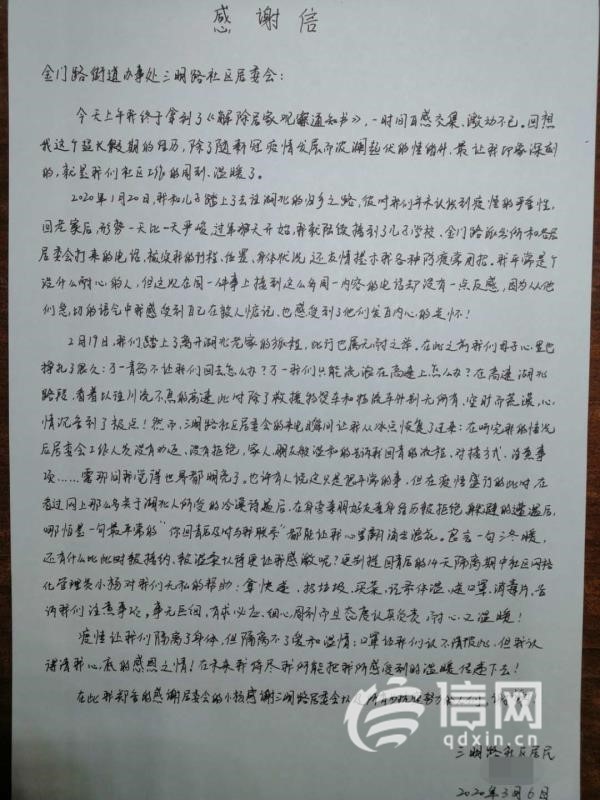 感谢信
金门路街道办事处三明路社区居委会：
今天上午我终于拿到了《解除居家观察通知书》，一时间百感交集、激动不已。回想
我这个超长假期的经历，除了随新冠疫情发展而波澜起伏的情绪外，最让我印象深刻
的，就是我们社区工作的周到、温暖了。
2020年1月20日，我和儿子踏上了去往湖北的归乡之路，彼时我们并未认识到疫情的严重性，
回老家后，形势一天比一天严峻，过年那天开始，我就陆续接到了儿子学校、金门路派出所和
居委会打来的电话，被询我的行程、位置、身体状况，还友情提示我各种防疫常用招。我平常是个
没什么耐心的人，但这次在同一件事上接到这么多同一内容的电话却没有一点反感，因为从他
们急切的语气中我感受到自己在被人惦记，也感受到了他们发自内心的关怀！
2月19日，我们踏上了离开湖北老家的旅程，此行已属无耐之举。在此之前我们母子心里也
挣扎了很久：万一青岛不让我们回去怎么办？万一我们只能流浪在高速上怎么办？在高速湖北
路段，看着以往川流不息的高速，此时除了救援物资车和物流车外别无所有，空旷而荒漠，心
情沉台到了极点！然而，三明路社区居委会的来电瞬间让我从冰点恢复了过来：在听完我的情况
后居委会工作人员没有劝返、没有拒绝，家人、朋友般温和的告诉我回青的流程、对接方式、注意事
项……霎那间我觉得世界都明亮了。也许有人说这只是很平常的事，但在疫情盛行的此时，在
看过网上那么多关于湖北人所受的冷漠待遇后，在身旁亲朋好友虽身居历被拒绝、躲避的遭遇后，
哪怕是一句最平常的“你回青后及时与我联系”都能让我心里翻涌出浪花。寒言一句三冬暖，
还有什么比此时被接纳、被温柔以待更让我感激呢？更别提回青后的14天隔离期中社区网格
化管理员小杨对我们无私的帮助：拿快递、扔垃圾、买菜、记录体温、送口罩、消毒片、告
诉我们注意事项，事无巨细、有求必应、细心周到而且态度认真负责、耐心又温暖！
疫情让我们隔离了身体，但隔离不了爱和温情；口罩让我们认不清彼此，但我认
清我心底的感恩之情！在未来我将尽我所能把我所感受到的温暖传递下去！
在此我郑重的感谢居委会的小杨感谢三明路居委会
信网
qdxin.cn
三明路社区居民
2020年3月6日